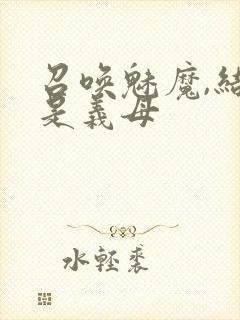 召唤魅魔,结
是義母
水轻裘